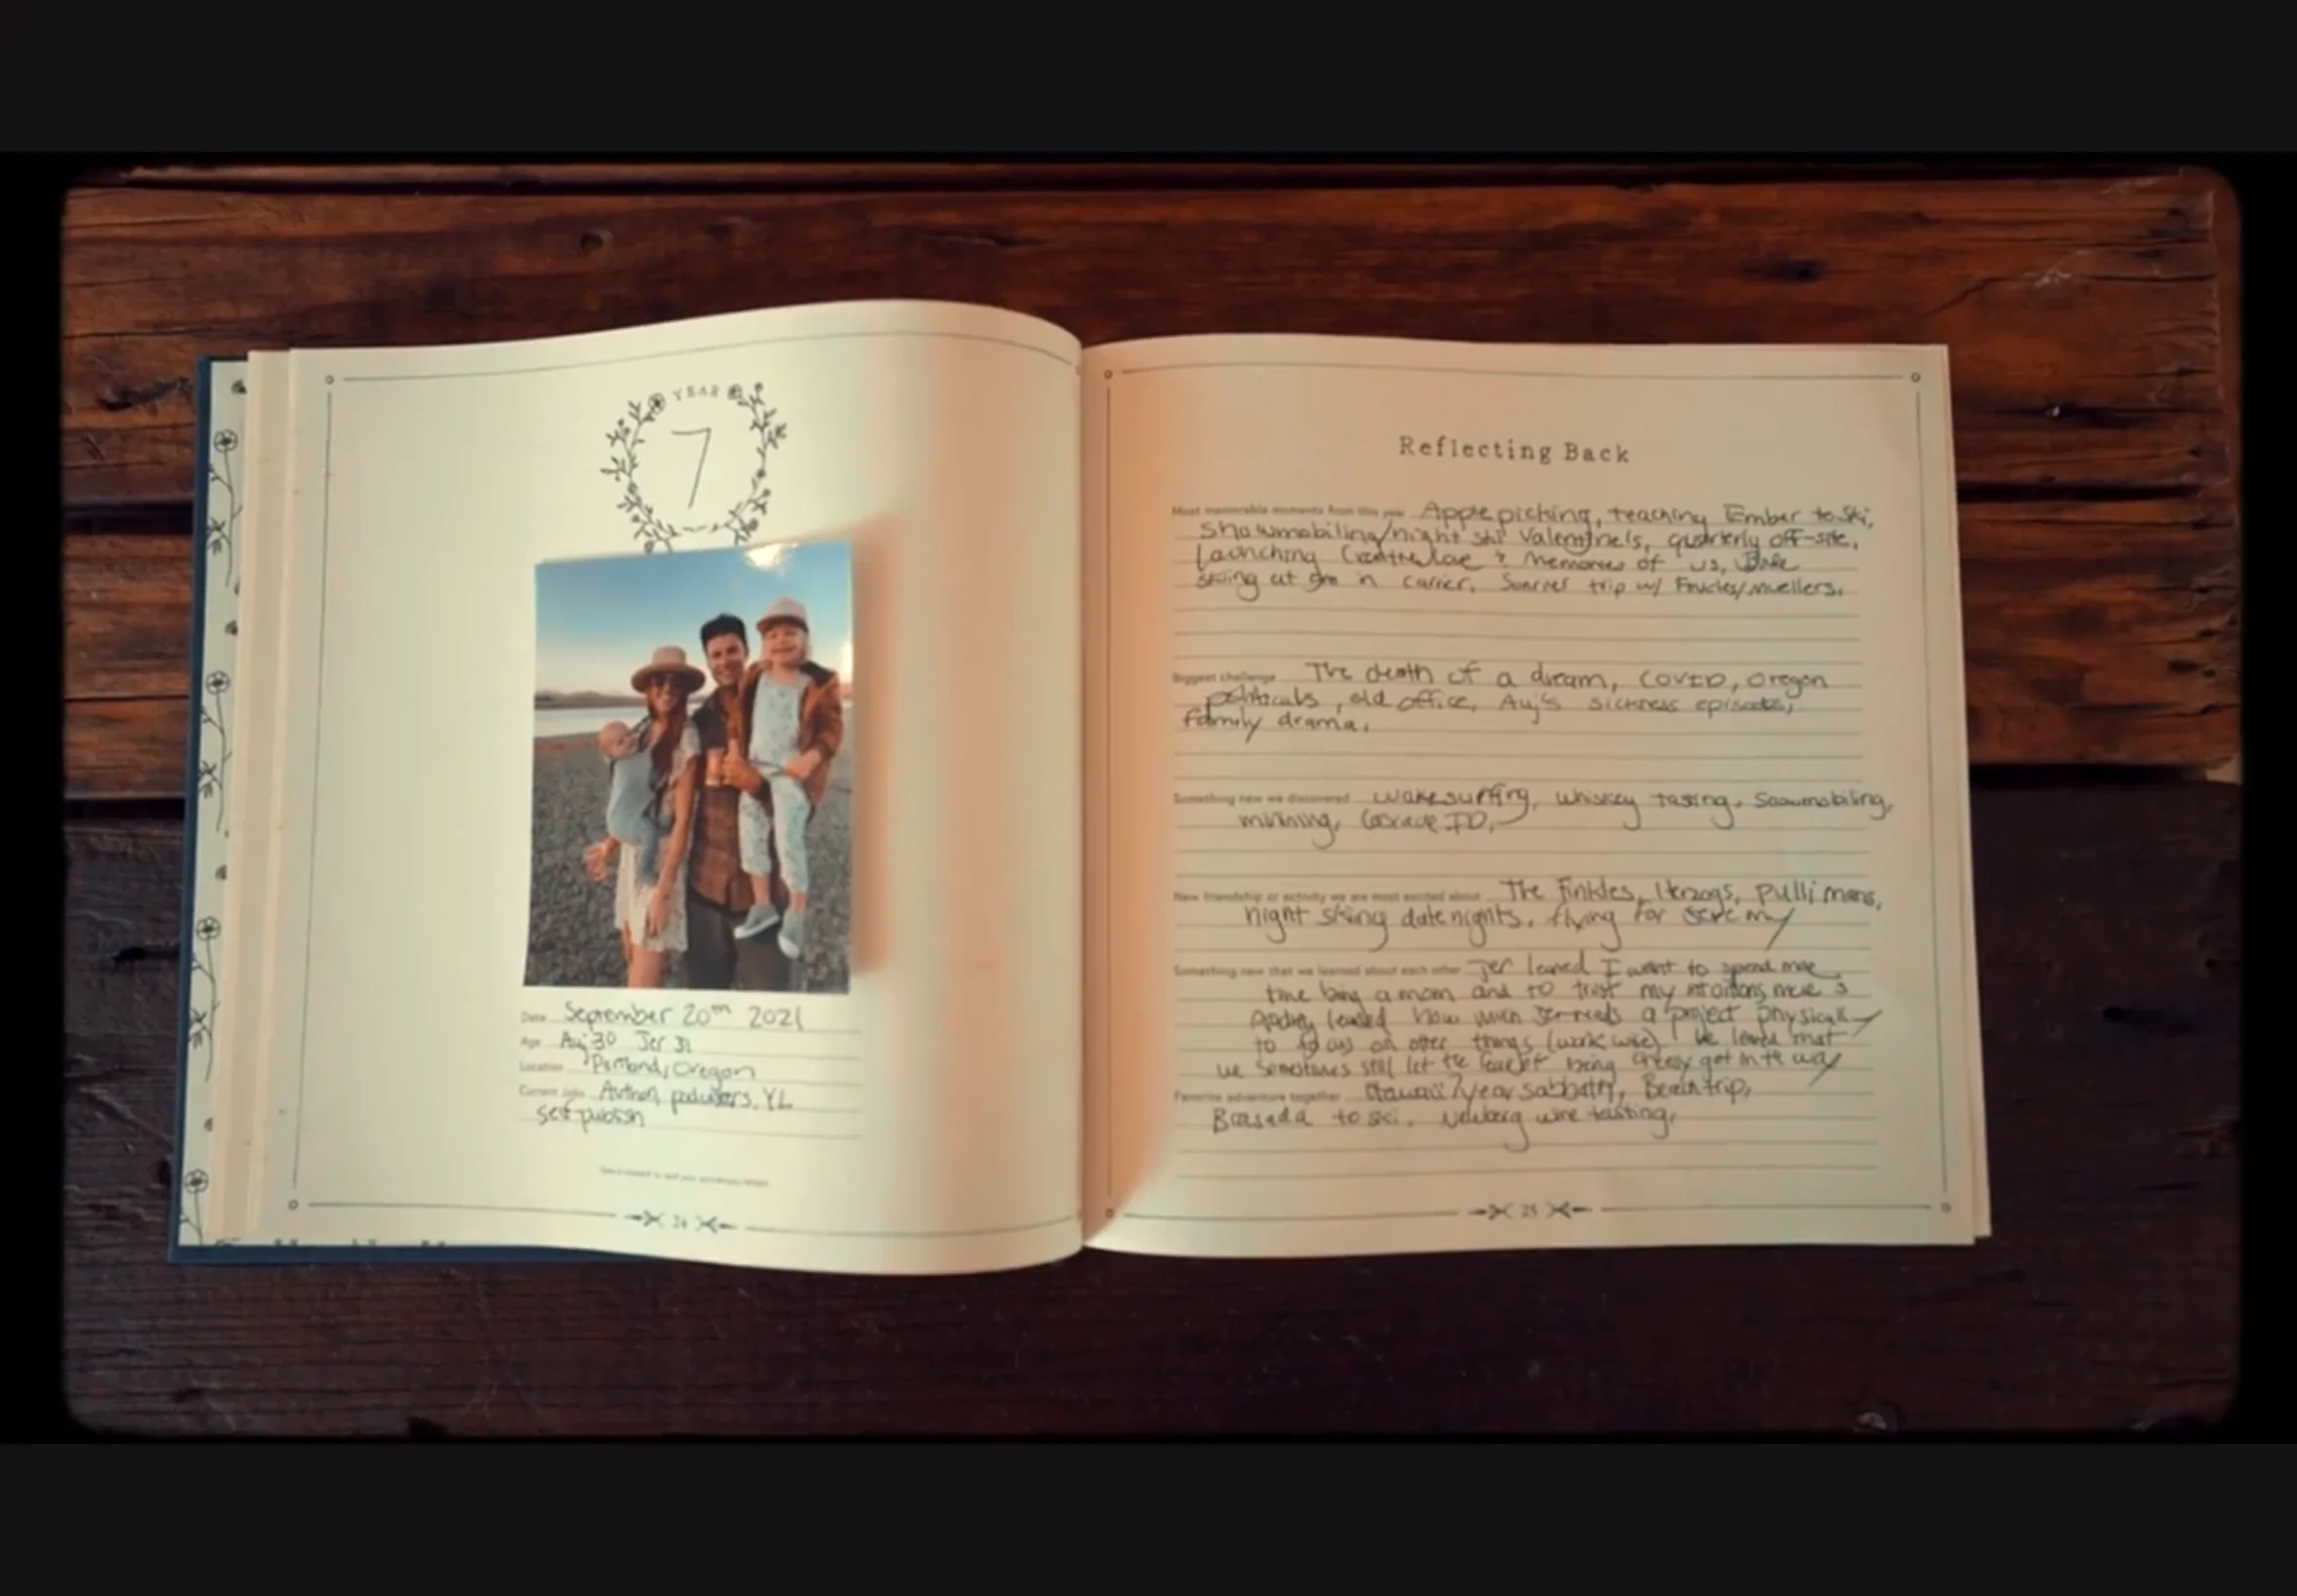 YEAR
7
Date September 20th 2021
Age Auj 30 Jer 31
Location Portland, Oregon
Current jobs Author, podcasters, YL
self-publish
24
Reflecting Back
Most memorable moments from this year Apple picking, teaching Ember to ski,
Snowmobiling/night ski Valentine's, quarterly off-site,
launching & Memories of us,
skiing at in carrier. trip w/ Finkles/Muellers.
Biggest challenge The death of a dream, COVID, Oregon
politicals, old office, Auj's sickness episodes,
family drama.
Something new we discovered wakesurfing, whiskey tasting, Snowmobiling,
Cascade ID,
New friendship or activity we are most excited about The Finkles, Herzogs, Pullimans,
night skiing date nights. flying for Jeremy
Something new that we learned about each other Jer learned I want to spend more
time being a mom and to trust my intuitions more &
Audrey learned how much Jer needs a project physically
to focus on other things (work wise) We learned that
we sometimes still let the fear of being get in the way
Favorite adventure together Hawaii 7 year sabbaty, trip,
Brasada to ski. Newberg wine tasting.
25